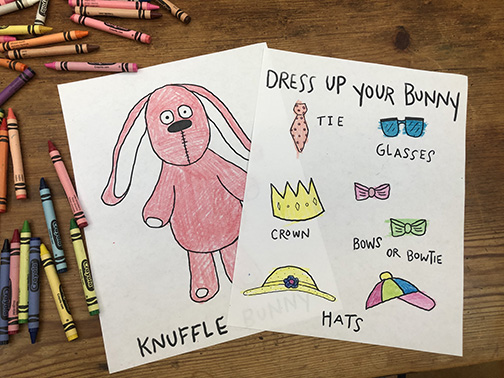 DRESS UP YOUR BUNNY
TIE
GLASSES
CROWN
BOWS OR BOWTIE
HATS
KNUFFLE
BUNNY
Crayola